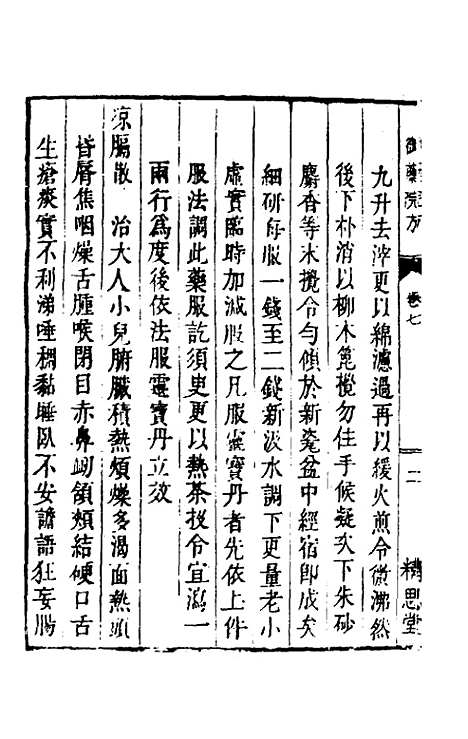 御藥院方
卷七
二
精思堂
九升去滓更以綿濾過再以緩火煎令微沸然
後下朴消以柳木篦攪勿住手候凝次下朱砂
麝香等末攪令勻傾於新甆盆中經宿即成矣
細研每服一錢至二錢新汲水調下更量老小
虛實臨時加減服之凡服靈寶丹者先依上件
服法調此藥服訖須臾更以熱茶投令宣瀉一
兩行為度後依法服靈寶丹立效
凉膈散 治大人小兒腑臟積熱煩燥多渴面熱頭
昏唇焦咽燥舌腫喉閉目赤鼻衂頷頰結硬口舌
生瘡痰實不利涕唾稠黏睡臥不安譫語狂妄腸